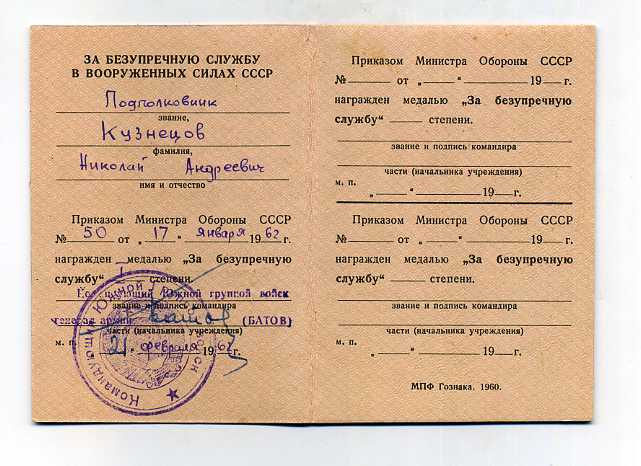 ЗА БЕЗУПРЕЧНУЮ СЛУЖБУ
В ВООРУЖЕННЫХ СИЛАХ СССР
Подполковник
звание,
Кузнецов
фамилия,
Николай Андреевич
имя и отчество
Приказом Министра Обороны СССР
№ 50 от „17“ января 1962 г.
награжден медалью „За безупречную
службу“ I степени.
Командующий Южной группой войск
звание и подпись командира
генерал армии Батов (БАТОВ)
части (начальника учреждения)
м. п. „21“ февраля 1962 г.
Командующий Южной группой войск
Приказом Министра Обороны СССР
№ от „ “ 19 г.
награжден медалью „За безупречную
службу“ степени.
звание и подпись командира
части (начальника учреждения)
м. п. „ “ 19 г.
Приказом Министра Обороны СССР
№ от „ “ 19 г.
награжден медалью „За безупречную
службу“ степени.
звание и подпись командира
части (начальника учреждения)
м. п. „ “ 19 г.
МПФ Гознака. 1960.